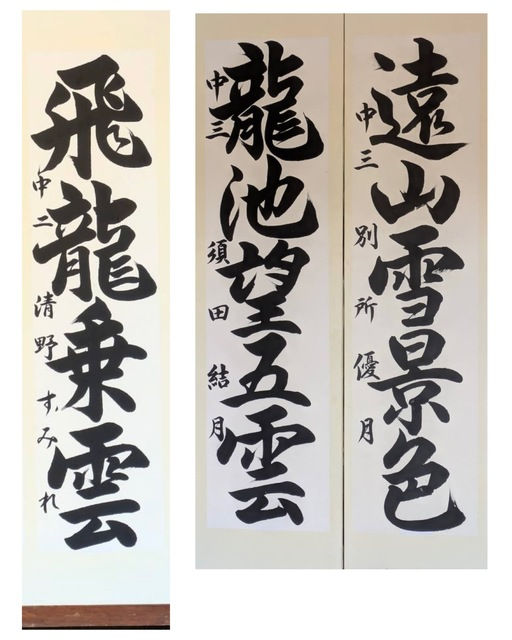 遠山雪景色
中三 別所優月
龍池望五雲
中三 須田結月
飛龍乗雲
中二 清野すみれ